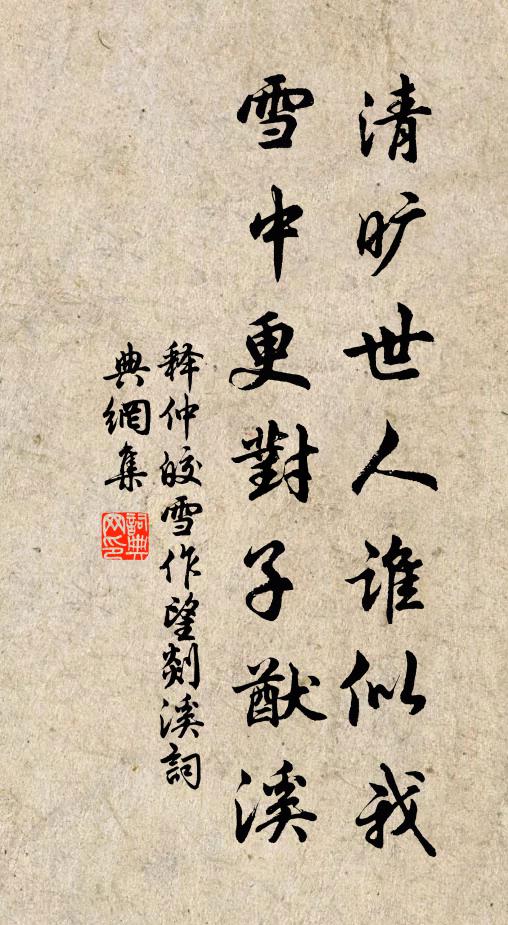 清旷世人谁似我
雪中更對子猷溪
释仲皎雪作望剡溪詞
典網集
詞典
网印